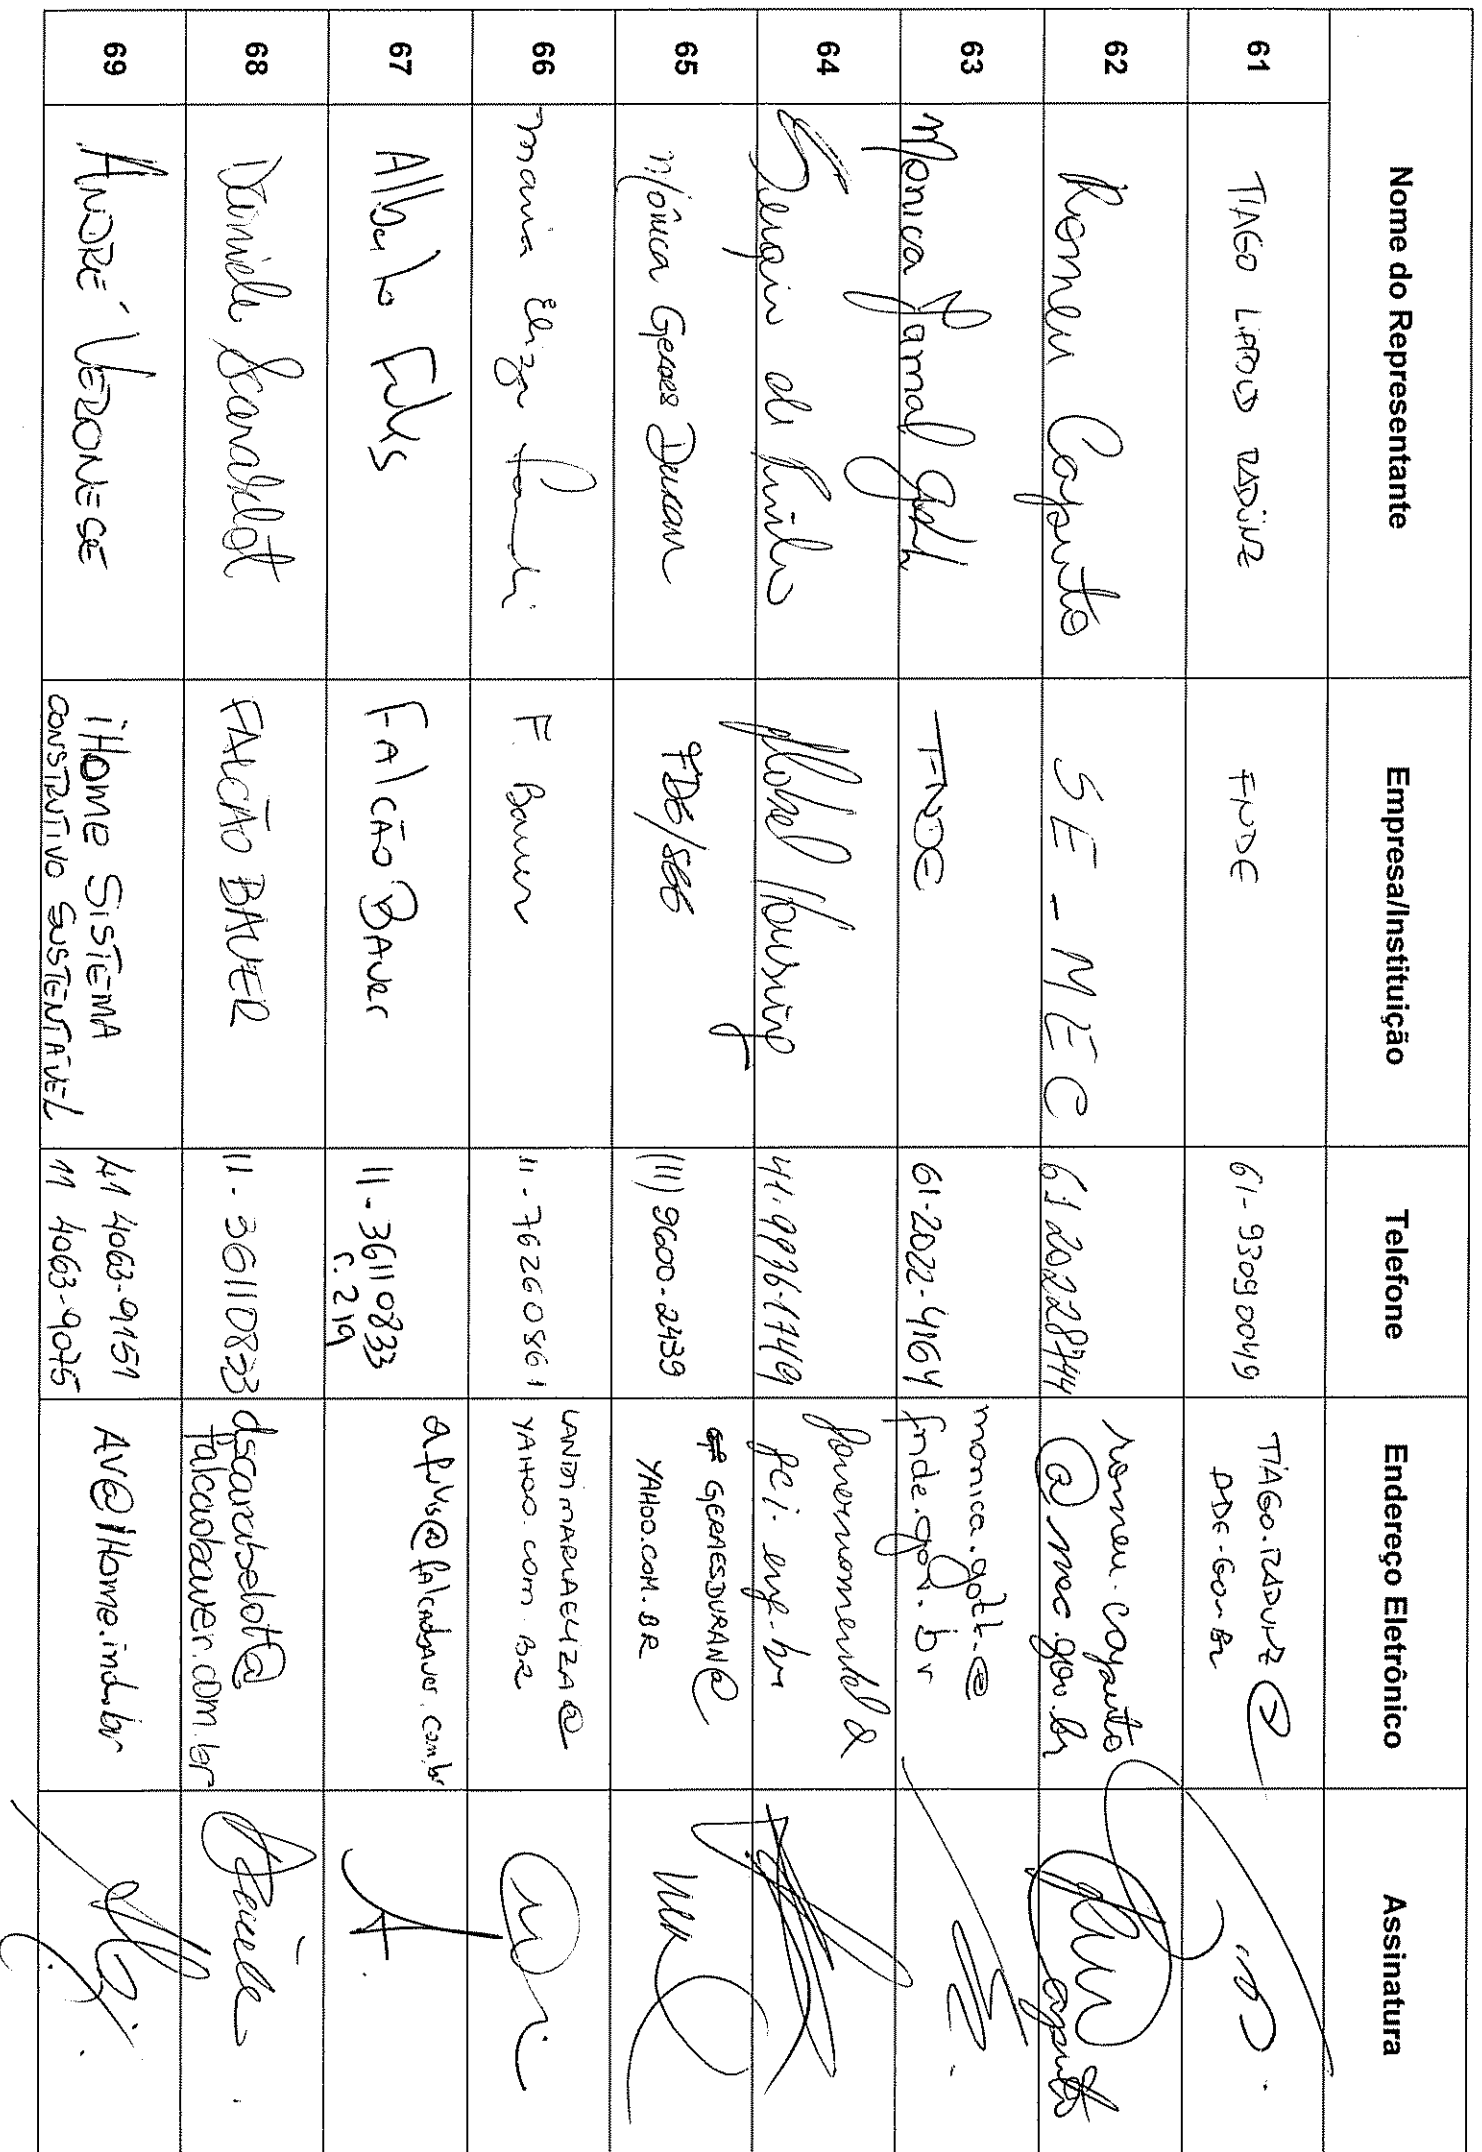 Nome do Representante
Empresa/Instituição
Telefone
Endereço Eletrônico
Assinatura
61
TIAGO LIPPOLD RADÜNZ
FNDE
61-93090049
TIAGO.RADUNZ@
62
Romeu Caputo
SE-MEC
61 20228744
romeu.caputo
@mec.gov.br
63
Monica Gott
FNDE
61-2022-4164
monica.gott@
fnde.gov.br
64
Sergio de
Global Housing
65
Mônica Geraes Duran
FDE/SEE
(11) 9600-2439
GERAESDURAN@
YAHOO.COM.BR
66
Maria Eliza Landi
F. Bauer
11-76260861
LANDIMARIAELIZA@
YAHOO.COM.BR
67
Alberto
FALCÃO BAUER
11-36110833
r. 219
@falcaobauer.com.br
68
Daniele Scarabelot
FALCÃO BAUER
11-36110833
dscarabelot@
falcaobauer.com.br
Daniele
69
ANDRÉ VERONESE
iHome SISTEMA
CONSTRUTIVO SUSTENTÁVEL
41 4063-9159
11 4063-9075
AV@iHome.ind.br